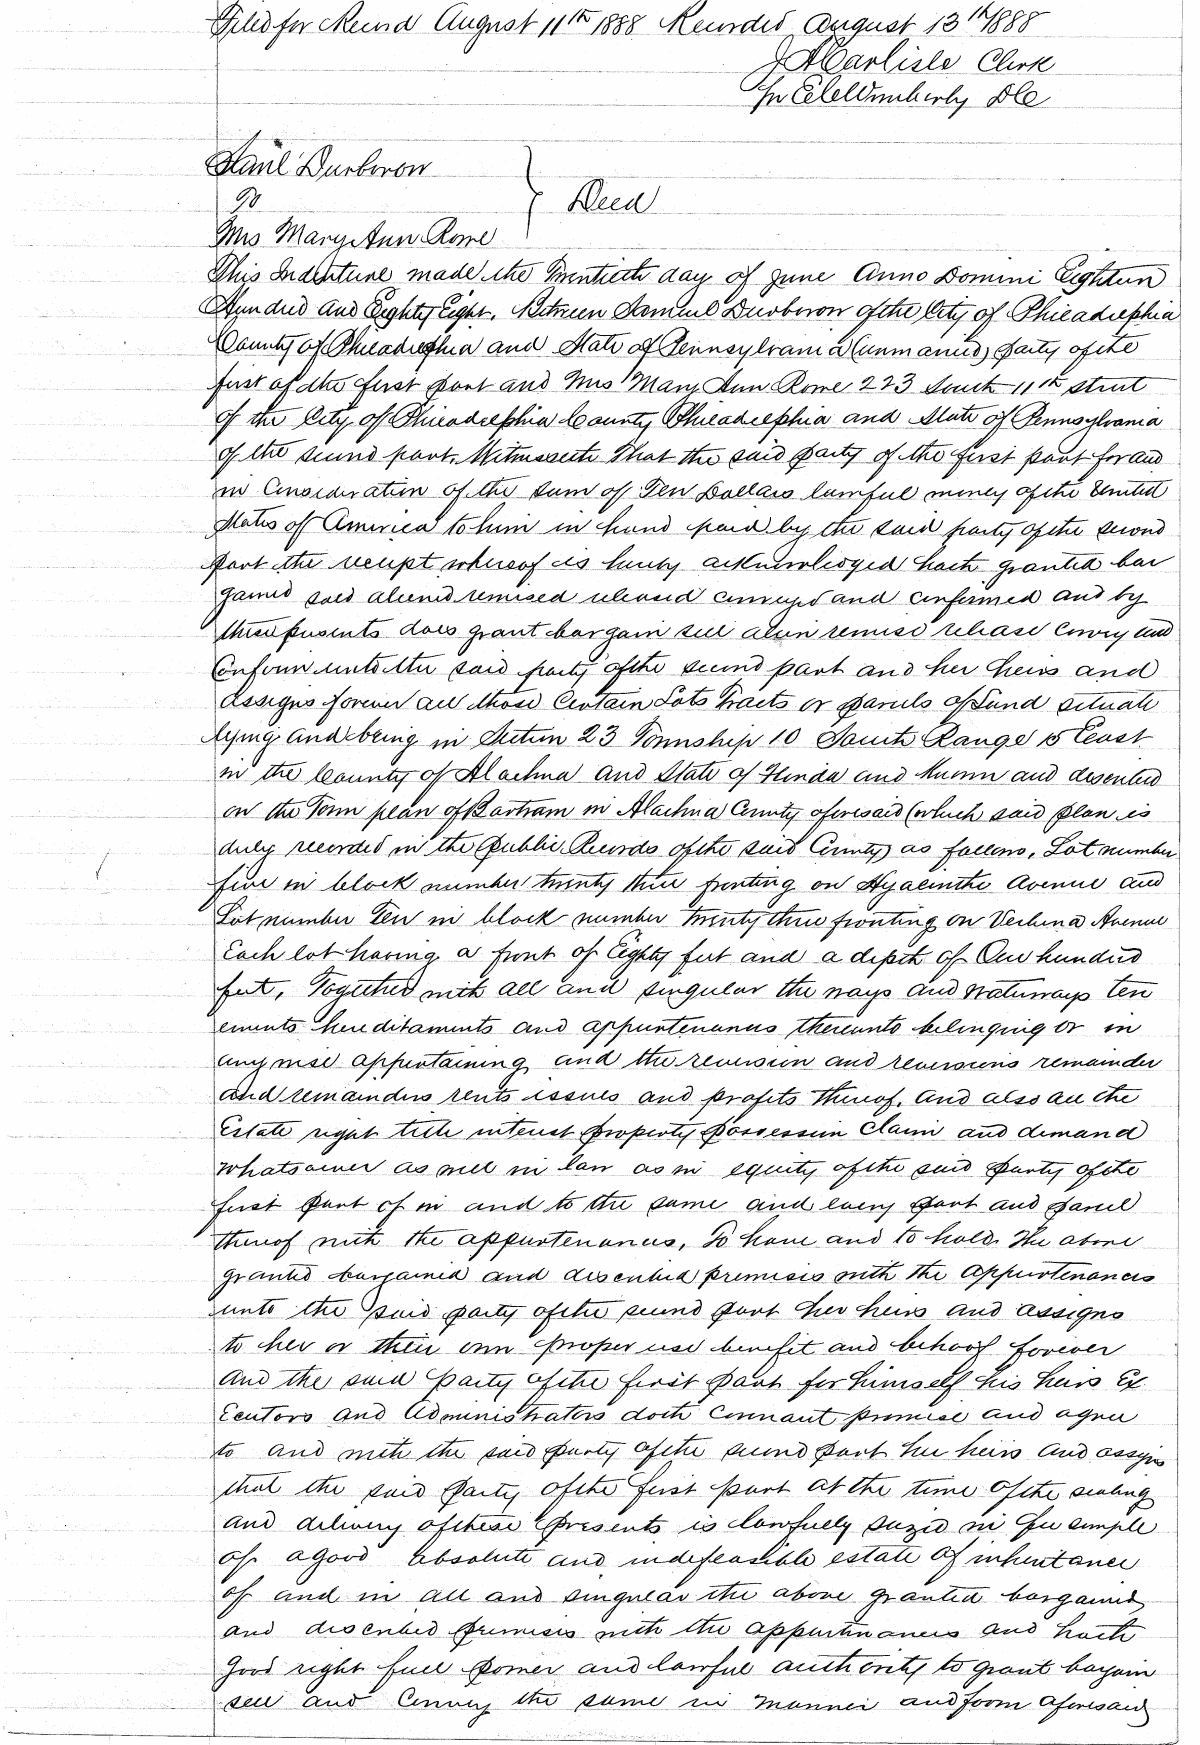 Filed for Record August 11th 1888 Recorded August 13th 1888
J A Carlisle Clerk
Wimberly DC
Saml Durboron
To
Deed
Mrs Mary Ann Rome
This Indenture made the Twentieth day of June Anno Domini Eighteen
Hundred and Eighty Eight. Between Samuel Durboron of the City of Philadelphia
County of Philadelphia and State of Pennsylvania (unmarried) party of the
first of the first part and Mrs Mary Ann Rome 223 South 11th street
of the City of Philadelphia County Philadelphia and State of Pennsylvania
of the second part. Witnesseth That the said party of the first part for and
in Consideration of the sum of Ten Dollars lawful money of the United
States of America to him in hand paid by the said party of the second
part the receipt whereof is hereby acknowledged hath granted bar
gained sold aliened remised released conveyed and confirmed and by
these presents does grant bargain sell alien remise release Convey and
Confirm unto the said party of the second part and her heirs and
Assigns forever all those Certain Lots Tracts or parcels of Land situate
lying and being in Section 23 Township 10 South Range 18 East
in the County of Alachua and State of Florida and known and described
on the Town plan of Bartram in Alachua County aforesaid (which said plan is
duly recorded in the Public Records of the said County) as follows, Lot number
five in block number twenty three fronting on Hyacinthe Avenue and
Lot number Ten in block number twenty three fronting on Verbena Avenue
Each lot having a front of Eighty feet and a depth of One hundred
feet, Together with all and singular the ways and waterways ten
ements hereditaments and appurtenances thereunto belonging or in
any wise appertaining and the reversion and reversions remainder
and remainders rents issues and profits thereof. And also all the
Estate right title interest property possession Claim and demand
whatsoever as well in law as in equity of the said party of the
first part of in and to the same and every part and parcel
thereof with the appurtenances, To have and to hold The above
granted bargained and described premises with the Appurtenances
unto the said party of the second part her heirs and assigns
to her or their own proper use benefit and behoof forever
And the said party of the first part for himself his heirs Ex
ecutors and Administrators doth Covenant promise and agree
to and with the said party of the second part her heirs and assigns
that the said party of the first part at the time of the sealing
and delivery of these presents is lawfully seized in fee simple
of a good absolute and indefeasible estate of inheritance
of and in all and singular the above granted bargained
and described premises with the appurtenances and hath
good right full power and lawful authority to grant bargain
sell and Convey the same in manner and form aforesaid